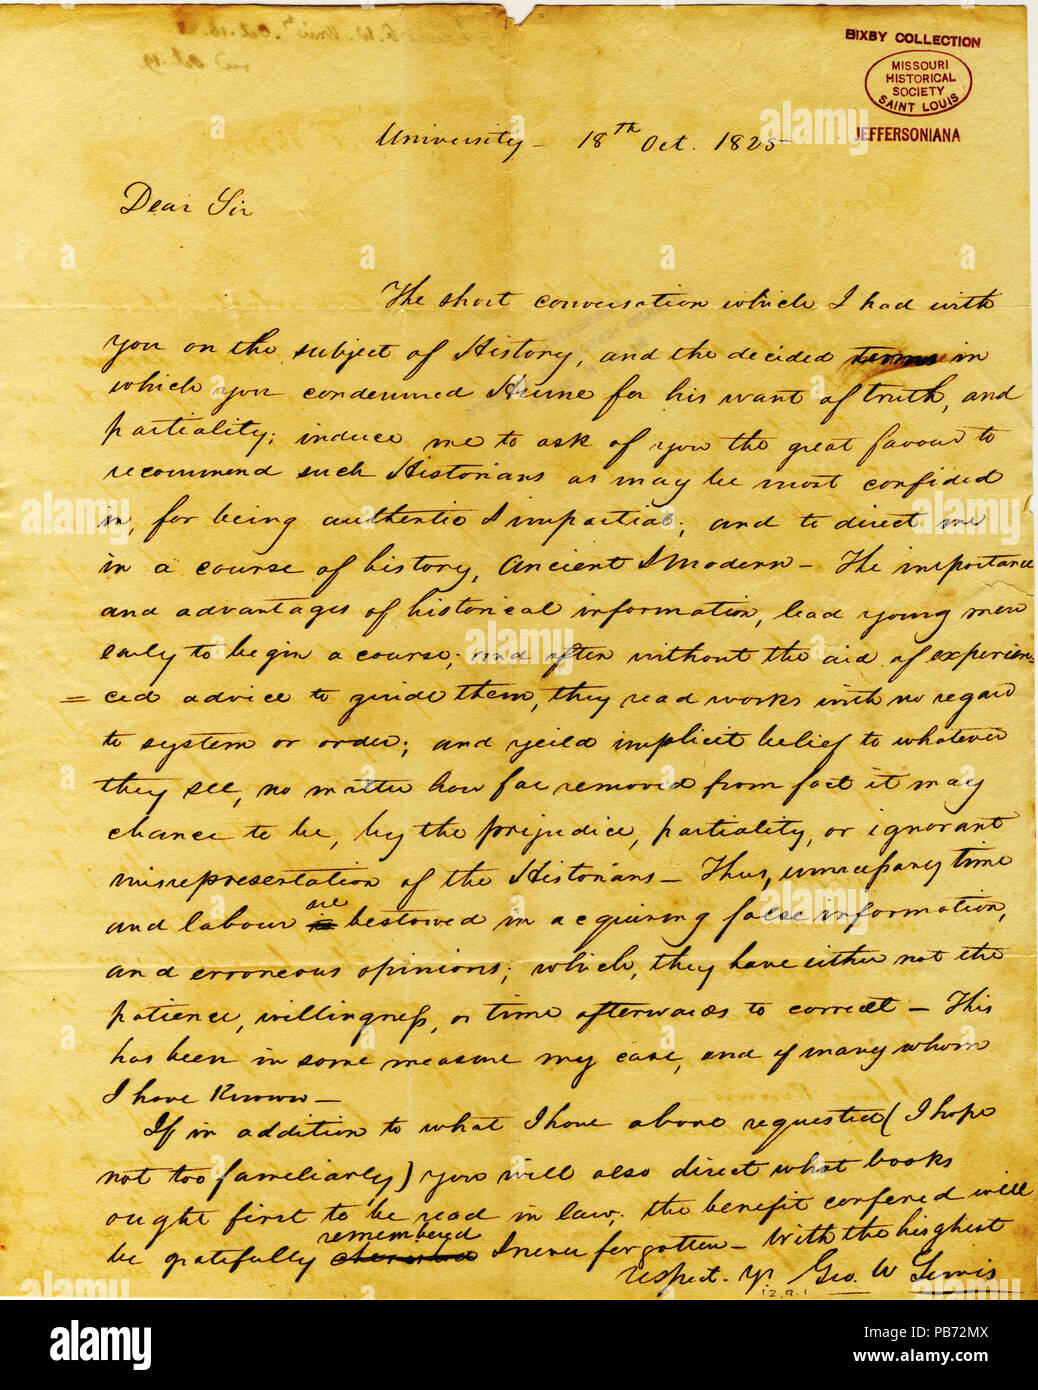 BIXBY COLLECTION
MISSOURI
HISTORICAL
SOCIETY
SAINT LOUIS
JEFFERSONIANA
University – 18th Oct. 1825
Dear Sir
The short conversation which I had with
you on the subject of History, and the decided terms in
which you condemned Hume for his want of truth, and
partiality; induce me to ask of you the great favour to
recommend such Historians as may be most confided
in, for being authentic & impartial; and to direct me
in a course of history, Ancient & Modern – The importance
and advantages of historical information, lead young men
early to begin a course; and often without the aid of experien=
=ced advice to guide them, they read works with no regard
to system or order; and yeild implicit belief to whatever
they see, no matter how far removed from fact it may
chance to be, by the prejudice, partiality, or ignorant
misrepresentation of the Historians – Thus, unnecessary time
and labour is are bestowed in acquiring false information,
and erroneous opinions; which, they have either not the
patience, willingness, or time afterwards to correct – This
has been in some measure my case, and of many whom
I have Known –
If in addition to what I have above requested (I hope
not too familiarly) you will also direct what books
ought first to be read in law; the benefit confered will
be gratefully remembered & never forgotten – With the highest
respect. Yr Geo. W Lewis
12.9.1
alamy
PB72MX
www.alamy.com